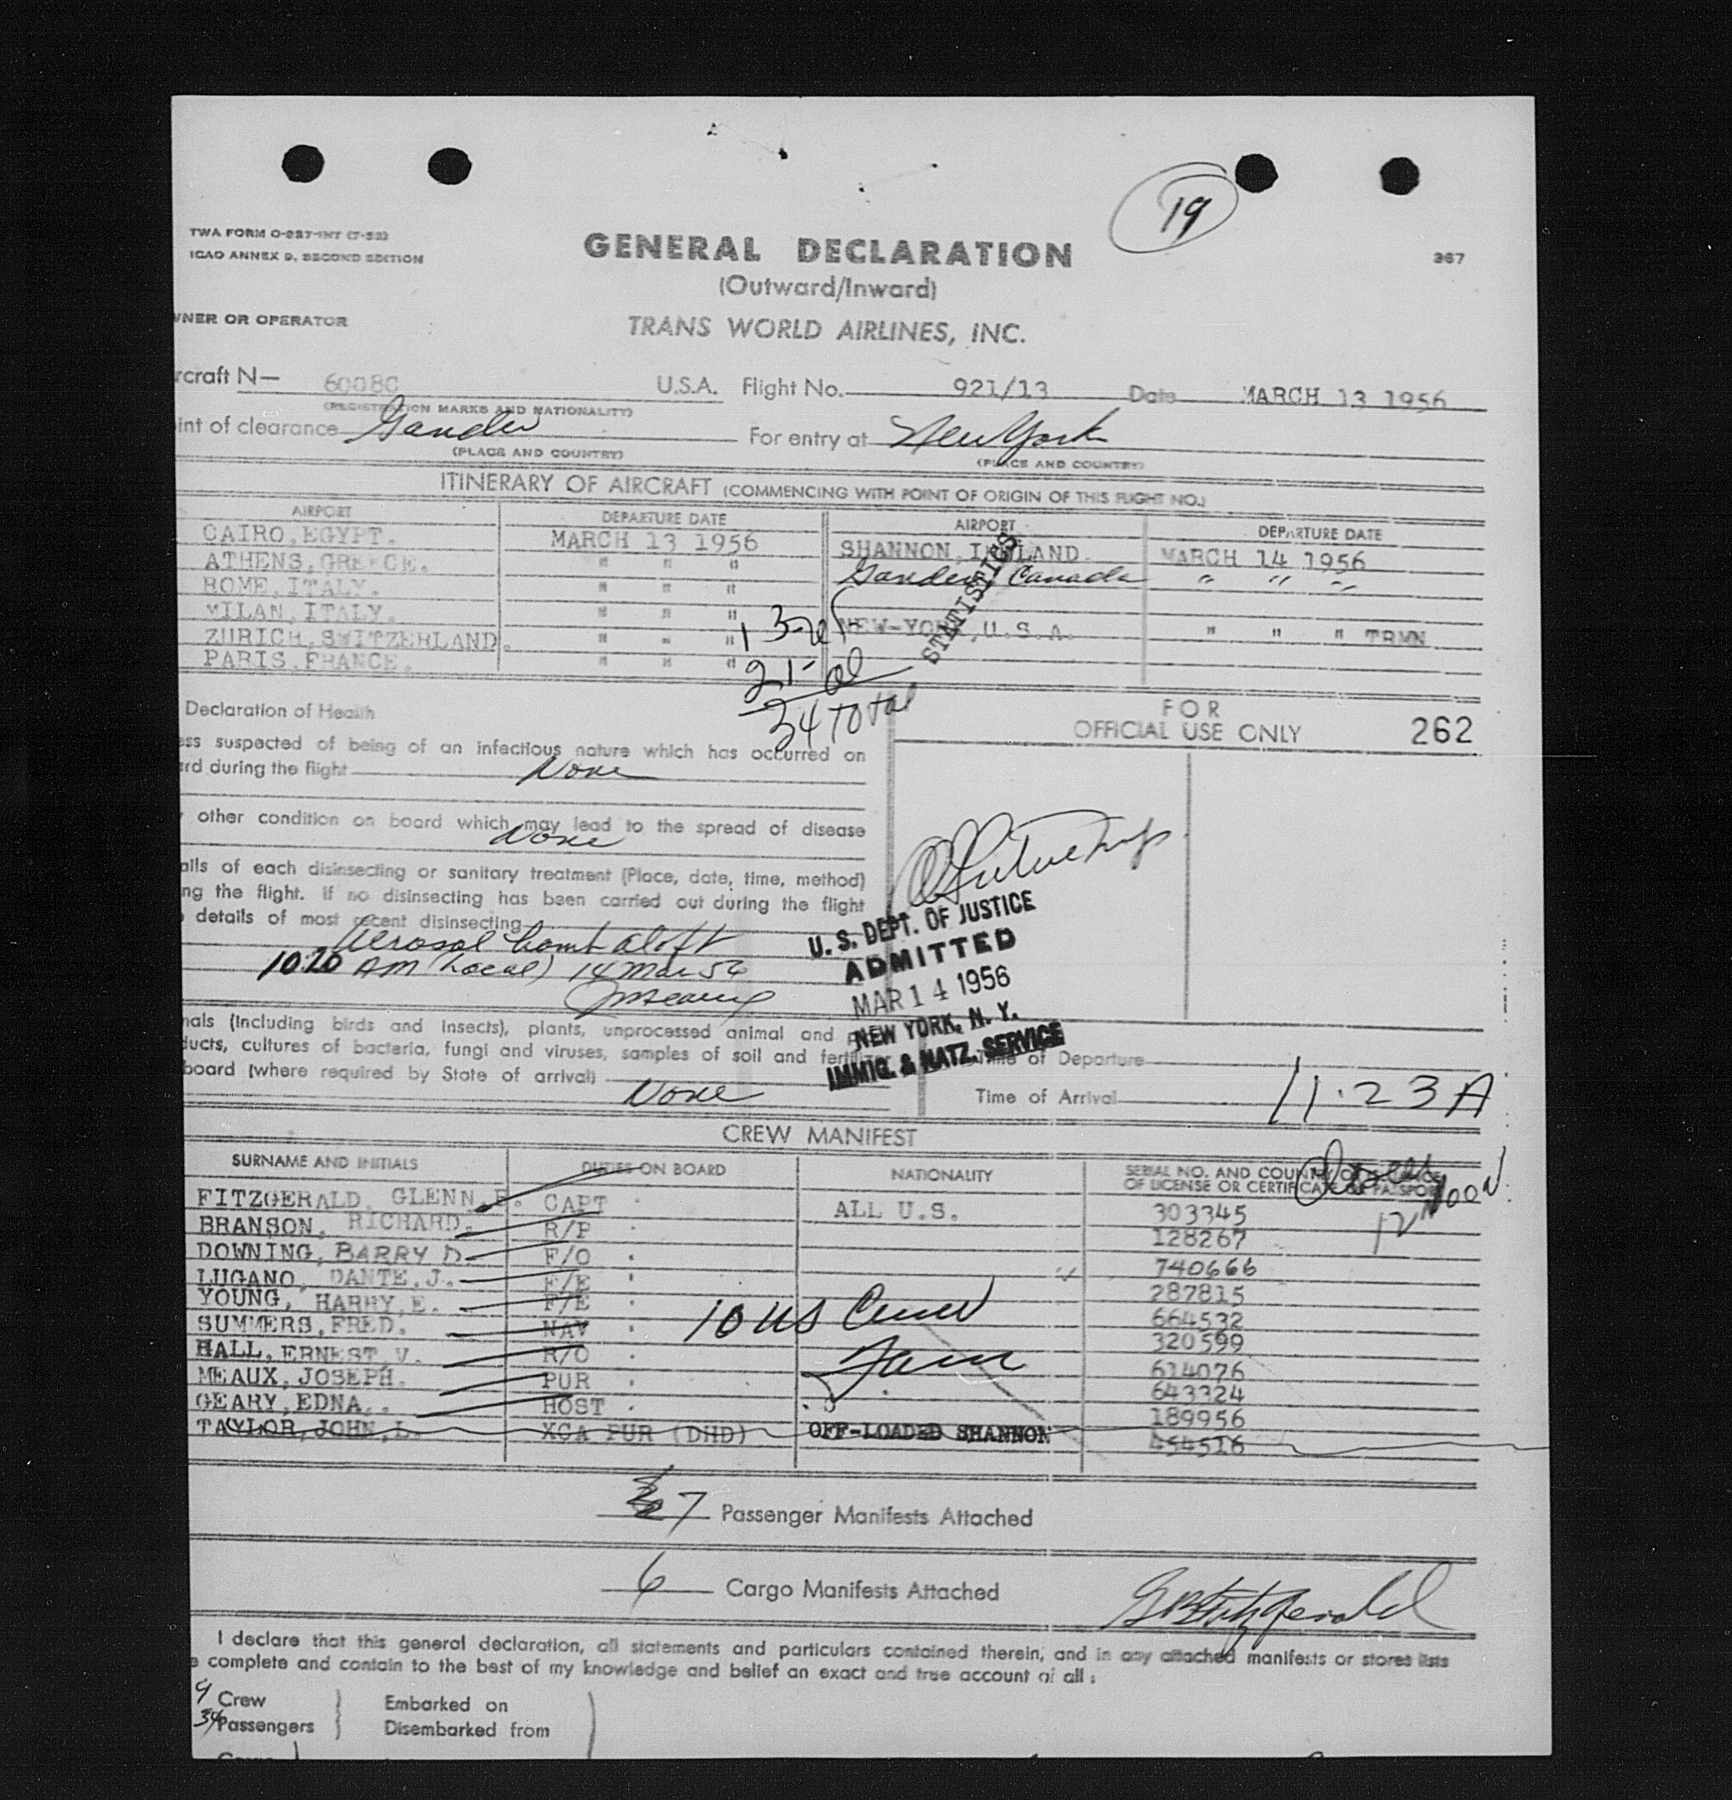 19
TWA FORM O-287-INT (7-52)
ICAO ANNEX 9, SECOND EDITION
GENERAL DECLARATION
367
(Outward/Inward)
WNER OR OPERATOR
TRANS WORLD AIRLINES, INC.
rcraft N— 6008C U.S.A. Flight No. 921/13 Date MARCH 13 1956
(REGISTRATION MARKS AND NATIONALITY)
int of clearance Gander For entry at New York
(PLACE AND COUNTRY) (PLACE AND COUNTRY)
ITINERARY OF AIRCRAFT (COMMENCING WITH POINT OF ORIGIN OF THIS FLIGHT NO.)
AIRPORT DEPARTURE DATE AIRPORT DEPARTURE DATE
CAIRO, EGYPT. MARCH 13 1956 SHANNON, IRELAND. MARCH 14 1956
ATHENS, GREECE. " " " Gander, Canada " " "
ROME, ITALY. " " "
MILAN, ITALY. " " " NEW-YORK, U.S.A. " " " TRMN
ZURICH, SWITZERLAND. " " "
PARIS, FRANCE. " " "
STATISTICS
21-al
34 Total
Declaration of Health
FOR
OFFICIAL USE ONLY 262
ess suspected of being of an infectious nature which has occurred on
ard during the flight None
other condition on board which may lead to the spread of disease
None
ails of each disinsecting or sanitary treatment (Place, date, time, method)
ng the flight. If no disinsecting has been carried out during the flight
details of most recent disinsecting
Aerosol bomb aloft
10:20 AM (Local) 14 Mar 56
U. S. DEPT. OF JUSTICE
ADMITTED
MAR 14 1956
NEW YORK, N. Y.
IMMIG. & NATZ. SERVICE
nals (Including birds and insects), plants, unprocessed animal and
ducts, cultures of bacteria, fungi and viruses, samples of soil and fertilizer
board (where required by State of arrival) None
Time of Departure
Time of Arrival 11:23A
CREW MANIFEST
SURNAME AND INITIALS DUTIES ON BOARD NATIONALITY SERIAL NO. AND COUNTRY OF ISSUANCE
OF LICENSE OR CERTIFICATE OR PASSPORT
12 Noon
FITZGERALD, GLENN, B. CAPT ALL U.S. 303345
BRANSON, RICHARD. R/P 128267
DOWNING, BARRY D. F/O 740666
LUGANO, DANTE, J. F/E 287815
YOUNG, HARRY, E. F/E 664532
SUMMERS, FRED. NAV 320599
HALL, ERNEST V. R/O 614076
MEAUX, JOSEPH. PUR 643324
GEARY, EDNA. HOST 189956
TAYLOR, JOHN, L. XCA PUR (DHD) OFF-LOADED SHANNON 454516
10 US Crew
7 Passenger Manifests Attached
6 Cargo Manifests Attached
GB Fitzgerald
I declare that this general declaration, all statements and particulars contained therein, and in any attached manifests or stores lists
e complete and contain to the best of my knowledge and belief an exact and true account of all :
9 Crew Embarked on
34 Passengers Disembarked from